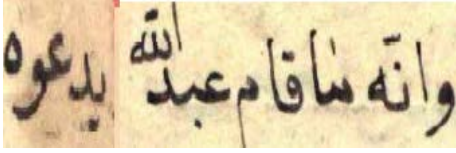 وانّه لما قام عبد الله يدعوه